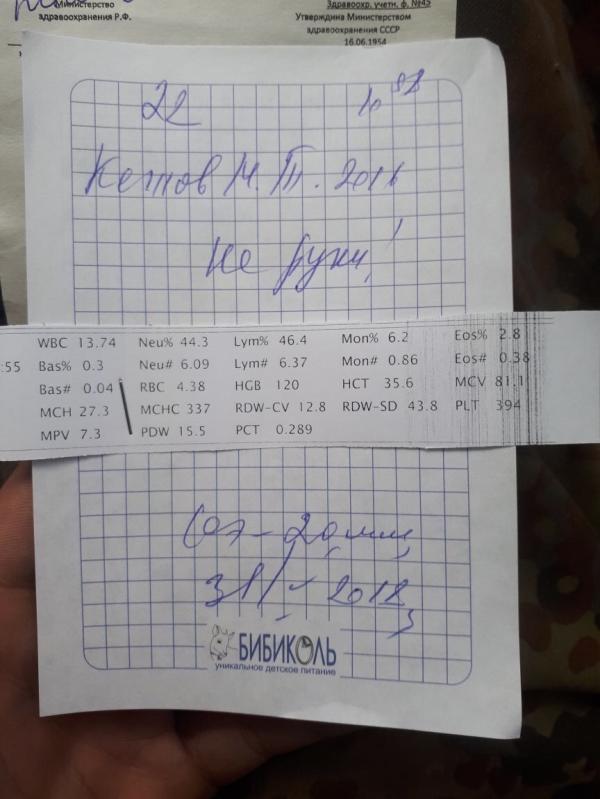 Министерство
здравоохранения Р.Ф.
Здравоохр. учетн. ф. №45
Утверждина Министерством
здравоохранения СССР
16.06.1954
22
М.Т. 2011
Не
WBC 13.74 Neu% 44.3 Lym% 46.4 Mon% 6.2 Eos% 2.8
:55 Bas% 0.3 Neu# 6.09 Lym# 6.37 Mon# 0.86 Eos# 0.38
Bas# 0.04 RBC 4.38 HGB 120 HCT 35.6 MCV 81.1
MCH 27.3 MCHC 337 RDW-CV 12.8 RDW-SD 43.8 PLT 394
MPV 7.3 PDW 15.5 PCT 0.289
Соэ - 20 мм
БИБИКОЛЬ
уникальное детское питание